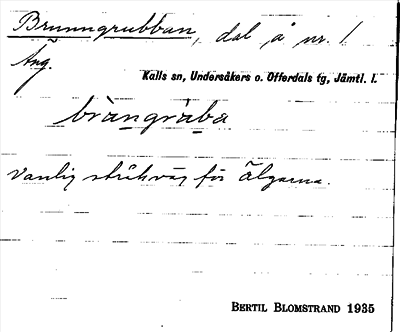 Brunngrubban, dal å nr. 1
Äng.
Kalls sn, Undersåkers o. Offerdals tg, Jämtl. l.
bràngràba
Vanlig stråkväg för älgarna.
BERTIL BLOMSTRAND 1935